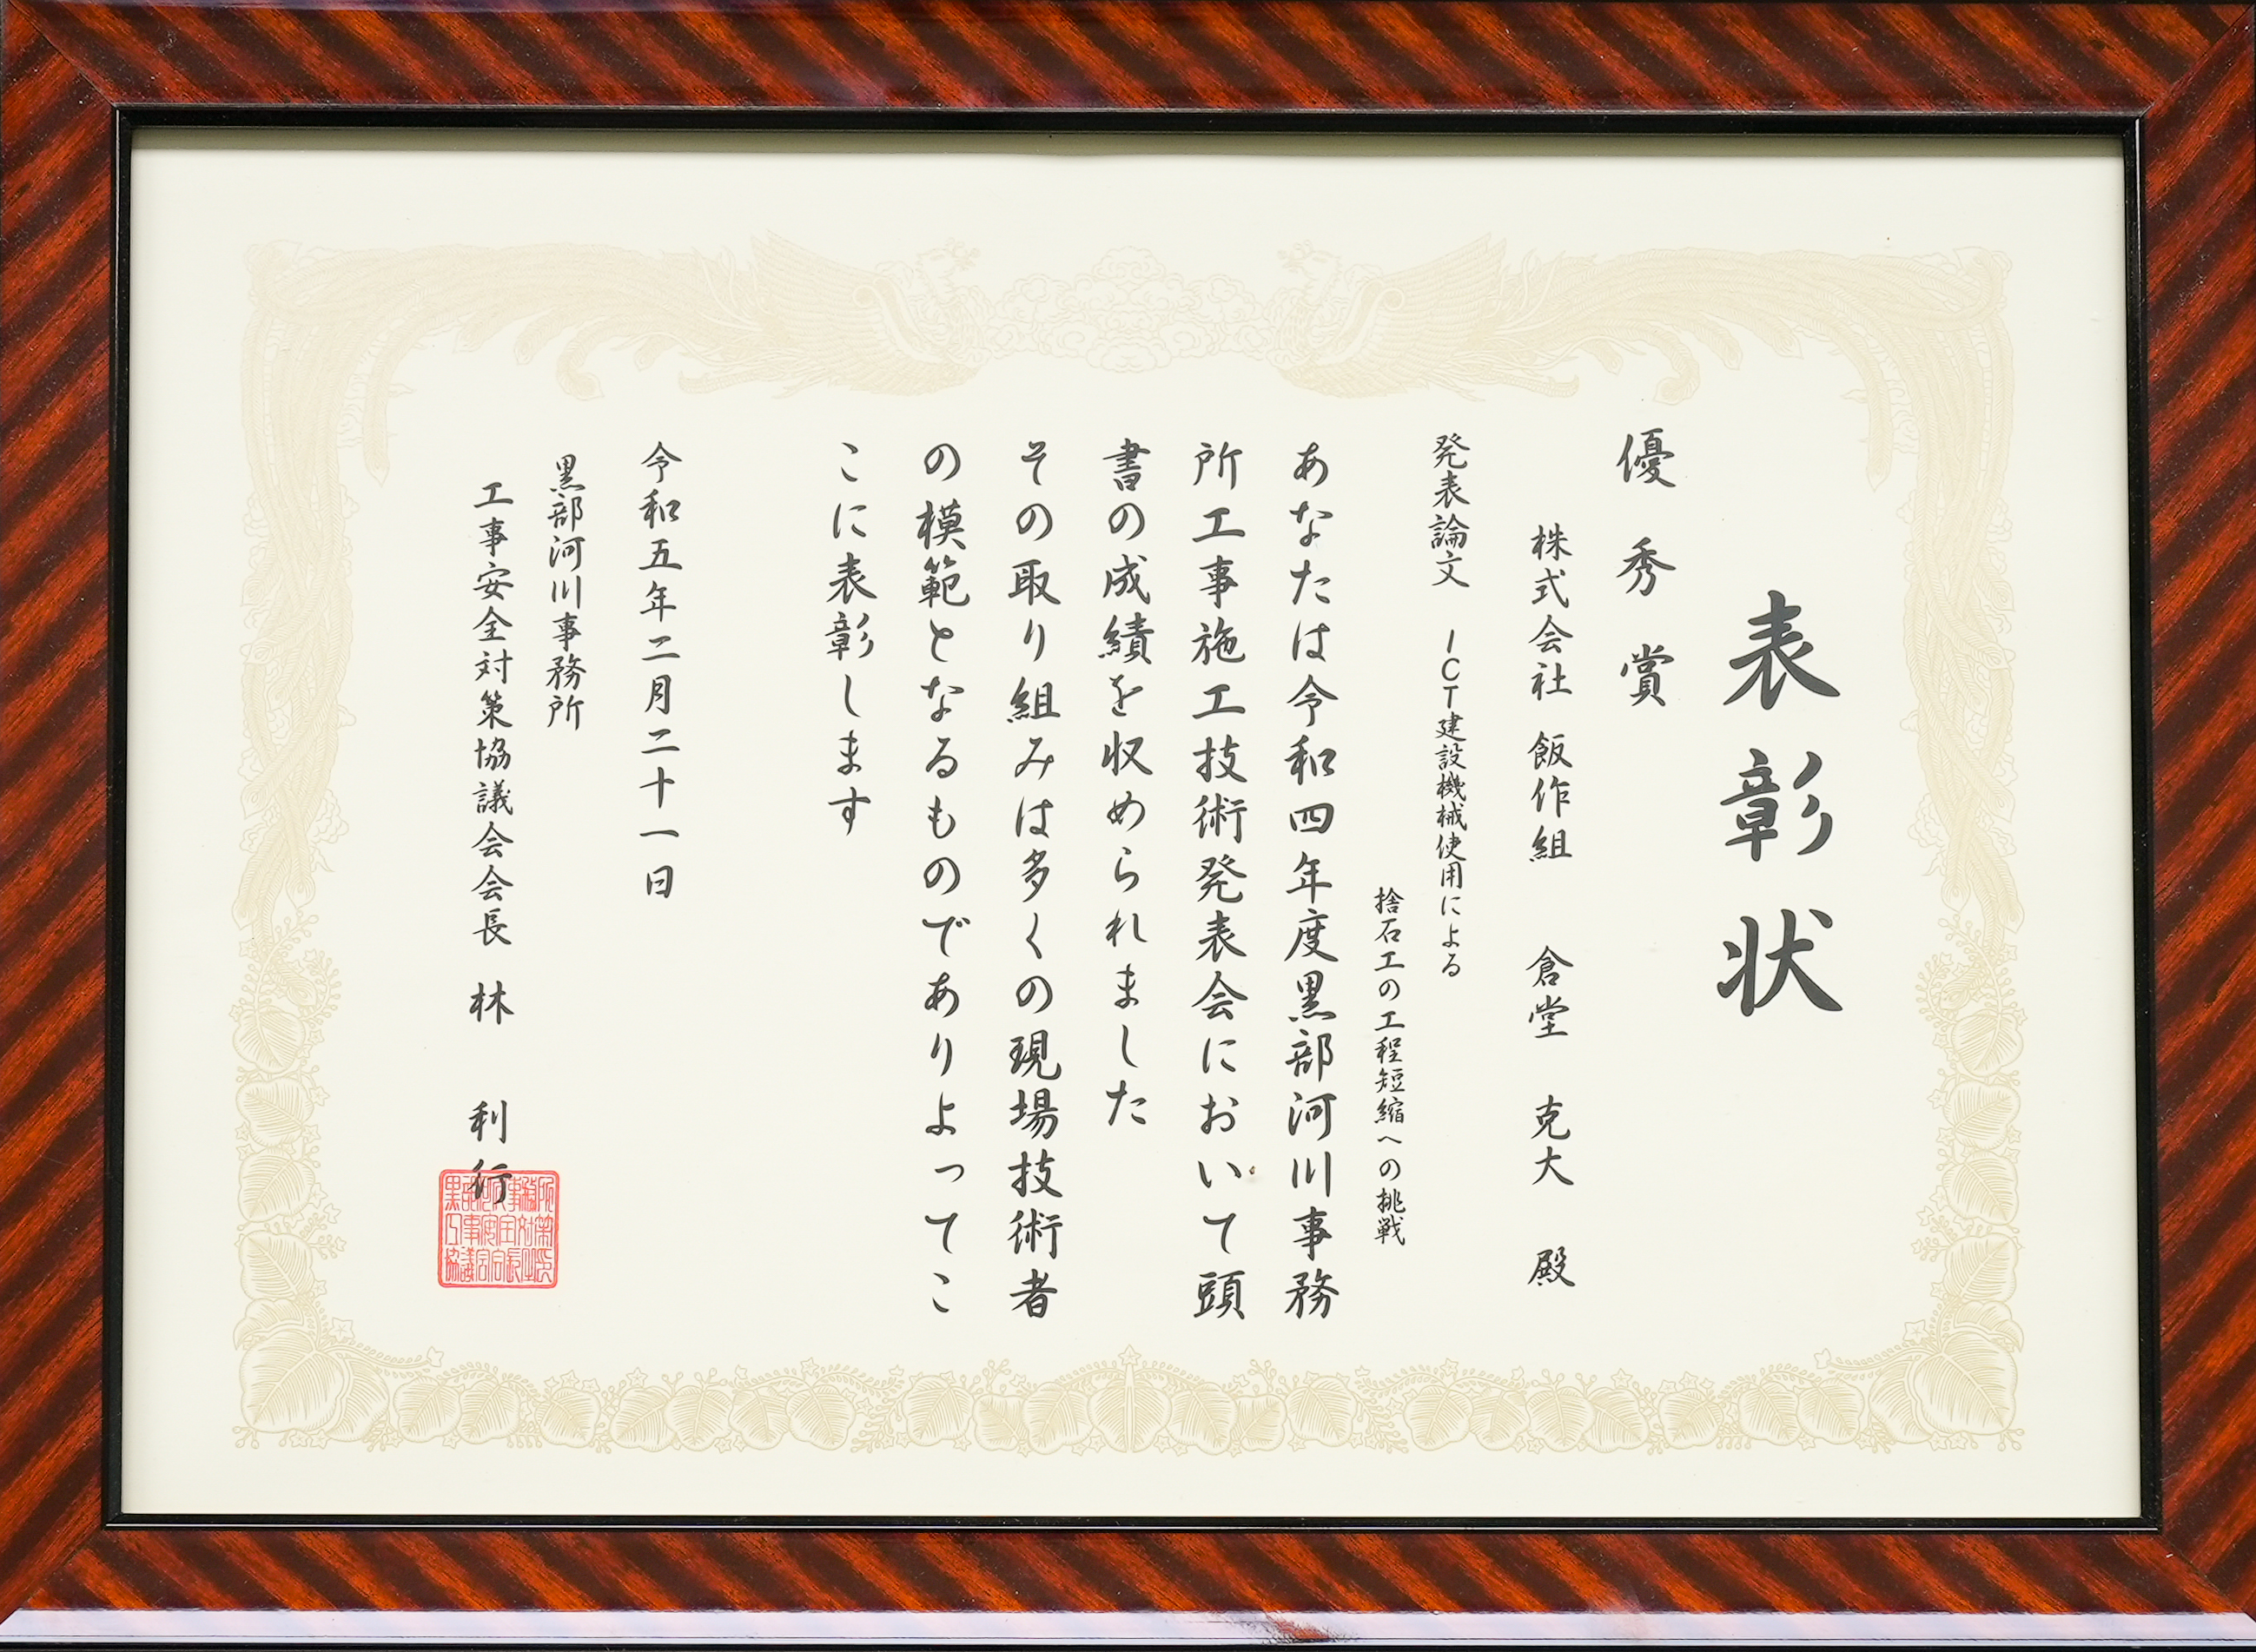 表彰状
優秀賞
株式会社 飯作組 倉堂 克大 殿
発表論文 ICT建設機械使用による
捨石工の工程短縮への挑戦
あなたは令和四年度黒部河川事務
所工事施工技術発表会において頭
書の成績を収められました
その取り組みは多くの現場技術者
の模範となるものでありよってこ
こに表彰します
令和五年二月二十一日
黒部河川事務所
工事安全対策協議会会長 林 利行